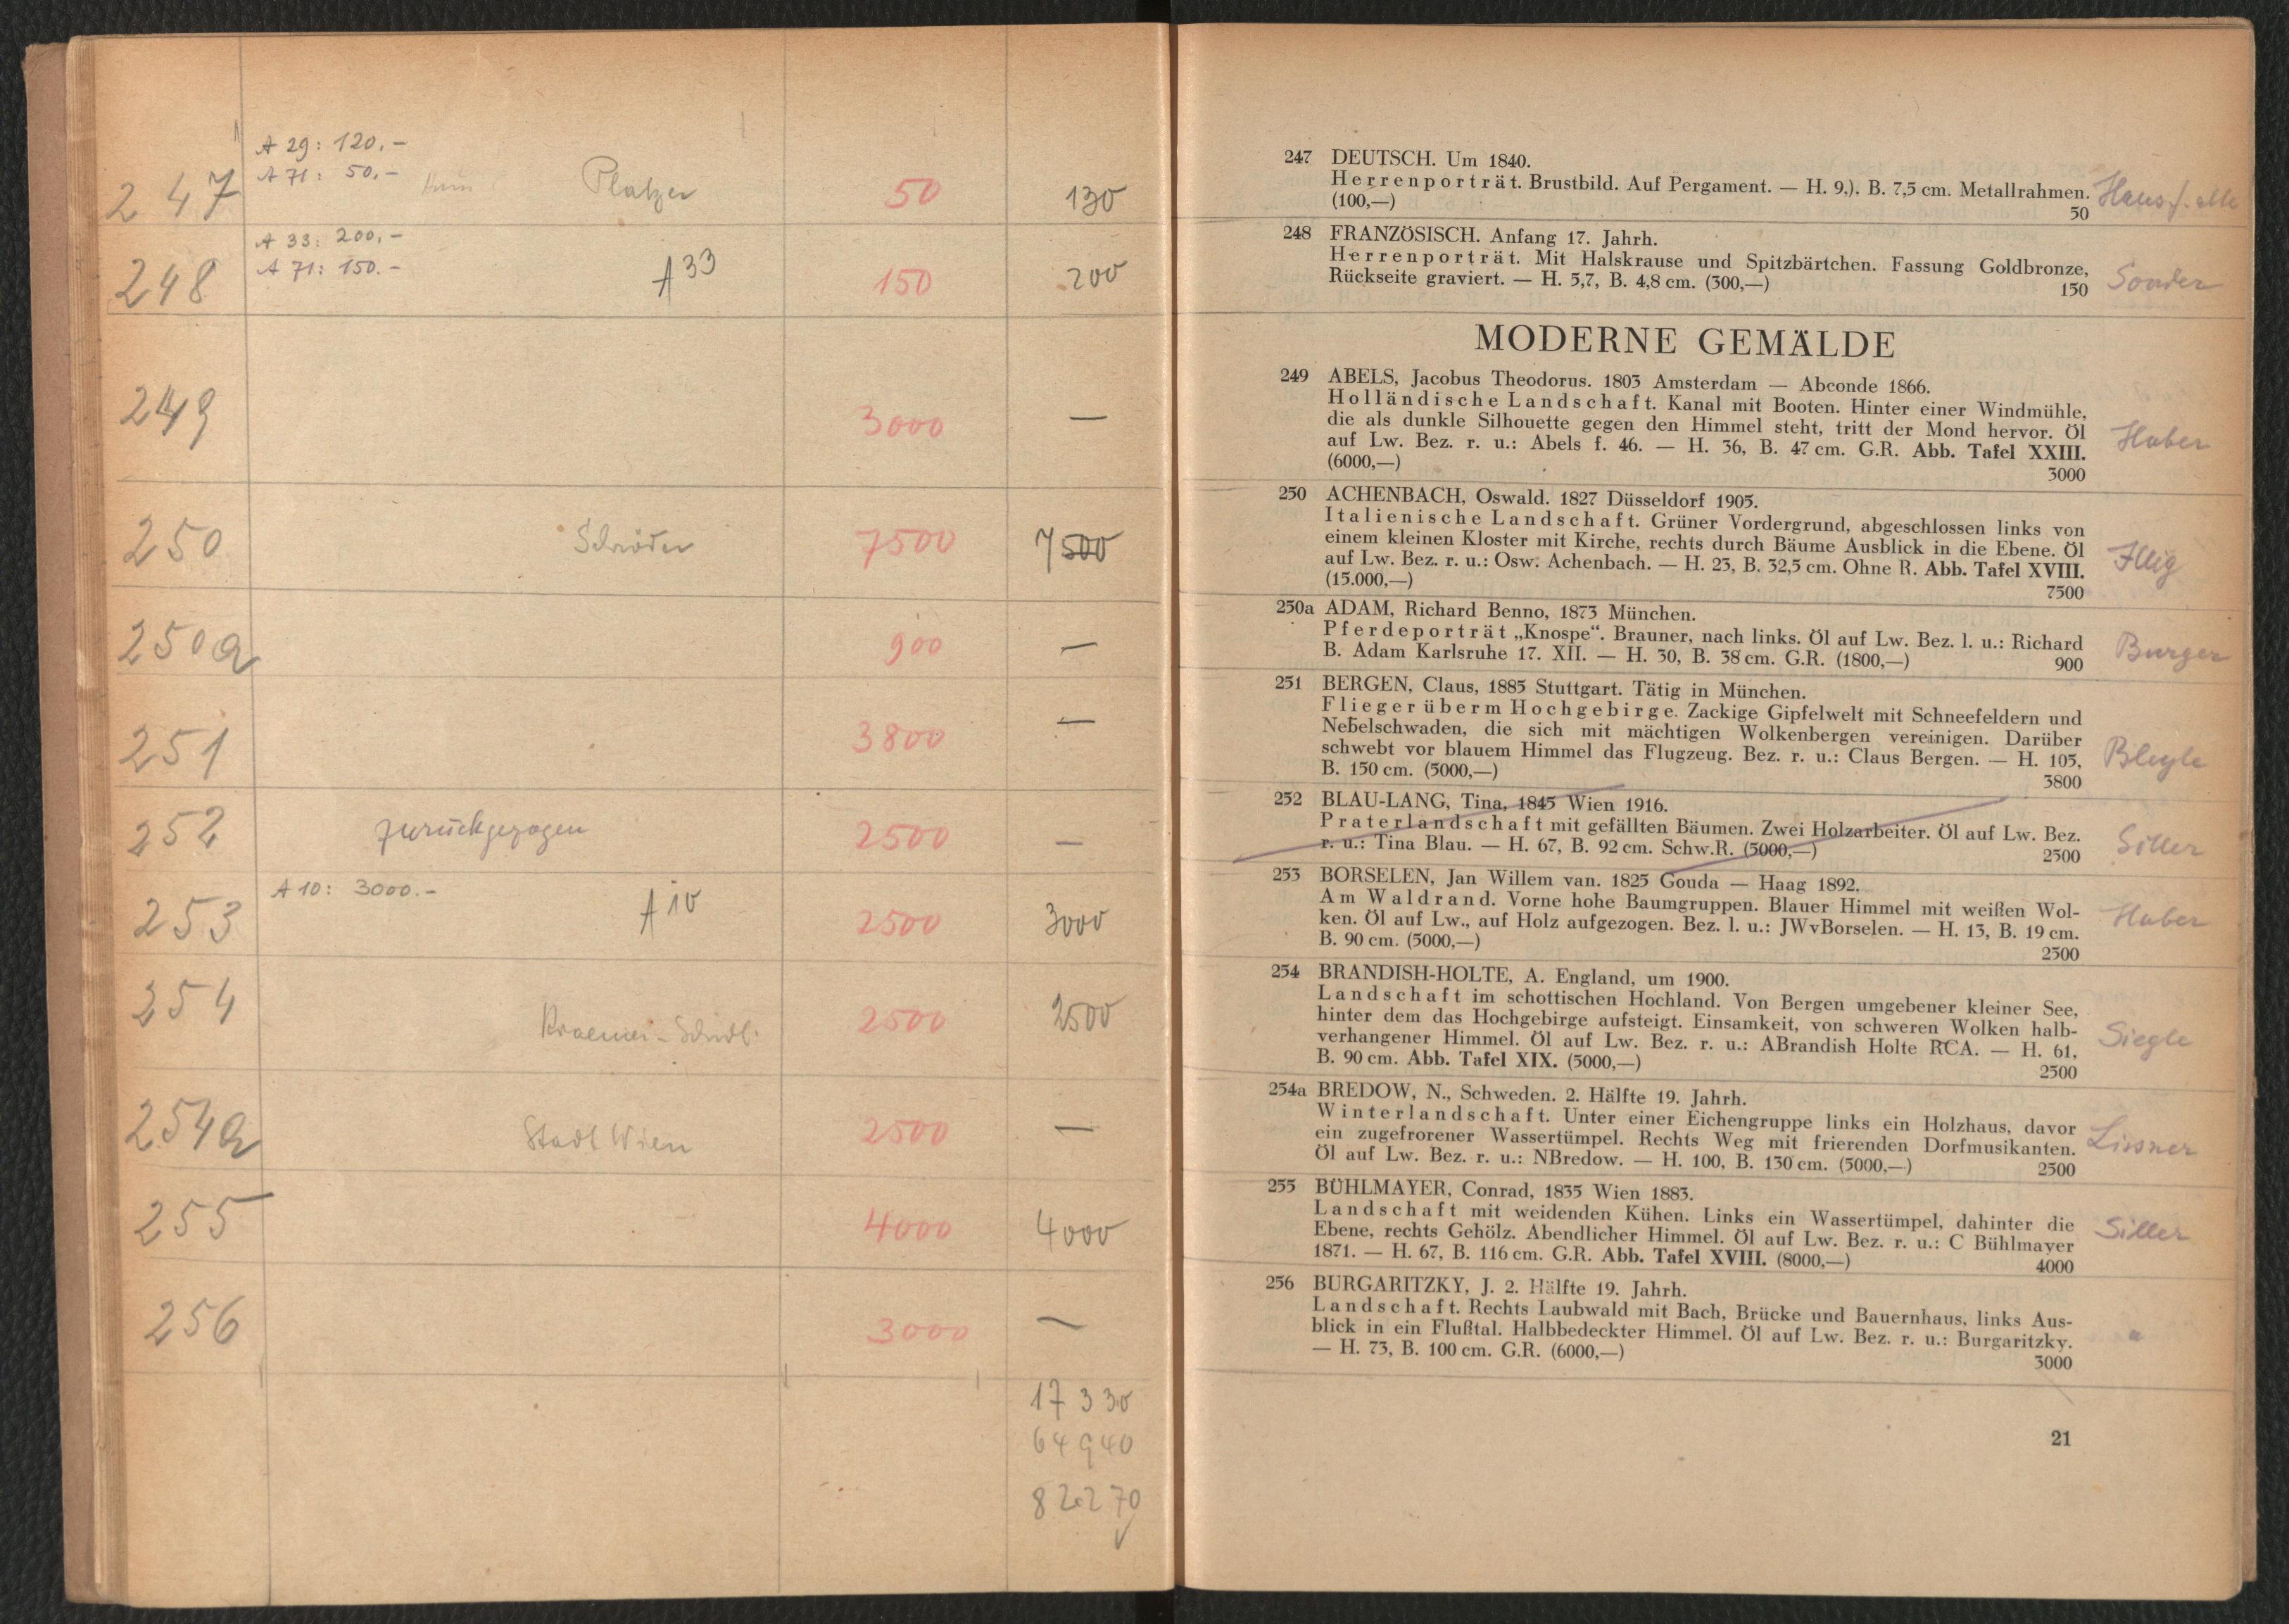 A 29: 120.-
A 71: 50.-
247 Platzer 50 130
A 33: 200.-
A 71: 150.-
248 A 33 150 200
249 3000 —
250 Schröder 7500 7500
250a 900 —
251 3800 —
252 zurückgezogen 2500 —
A 10: 3000.-
253 A 10 2500 3000
254 2500 2500
254a Stadt Wien 2500 —
255 4000 4000
256 3000 —
17330
64940
82270
247 DEUTSCH. Um 1840.
Herrenporträt. Brustbild. Auf Pergament. — H. 9,). B. 7,5 cm. Metallrahmen.
(100,—) 50
248 FRANZÖSISCH. Anfang 17. Jahrh.
Herrenporträt. Mit Halskrause und Spitzbärtchen. Fassung Goldbronze,
Rückseite graviert. — H. 5,7, B. 4,8 cm. (300,—) 150
Sonder
MODERNE GEMÄLDE
249 ABELS, Jacobus Theodorus. 1803 Amsterdam — Abconde 1866.
Holländische Landschaft. Kanal mit Booten. Hinter einer Windmühle,
die als dunkle Silhouette gegen den Himmel steht, tritt der Mond hervor. Öl
auf Lw. Bez. r. u.: Abels f. 46. — H. 36, B. 47 cm. G.R. Abb. Tafel XXIII.
(6000,—) 3000
Huber
250 ACHENBACH, Oswald. 1827 Düsseldorf 1905.
Italienische Landschaft. Grüner Vordergrund, abgeschlossen links von
einem kleinen Kloster mit Kirche, rechts durch Bäume Ausblick in die Ebene. Öl
auf Lw. Bez. r. u.: Osw. Achenbach. — H. 23, B. 32,5 cm. Ohne R. Abb. Tafel XVIII.
(15.000,—) 7500
Illig
250a ADAM, Richard Benno, 1873 München.
Pferdeporträt „Knospe“. Brauner, nach links. Öl auf Lw. Bez. l. u.: Richard
B. Adam Karlsruhe 17. XII. — H. 30, B. 38 cm. G.R. (1800,—) 900
Burger
251 BERGEN, Claus, 1885 Stuttgart. Tätig in München.
Flieger überm Hochgebirge. Zackige Gipfelwelt mit Schneefeldern und
Nebelschwaden, die sich mit mächtigen Wolkenbergen vereinigen. Darüber
schwebt vor blauem Himmel das Flugzeug. Bez. r. u.: Claus Bergen. — H. 105,
B. 150 cm. (5000,—) 3800
Bleyle
252 BLAU-LANG, Tina, 1845 Wien 1916.
Praterlandschaft mit gefällten Bäumen. Zwei Holzarbeiter. Öl auf Lw. Bez.
r. u.: Tina Blau. — H. 67, B. 92 cm. Schw.R. (5000,—) 2500
Siller
253 BORSELEN, Jan Willem van. 1825 Gouda — Haag 1892.
Am Waldrand. Vorne hohe Baumgruppen. Blauer Himmel mit weißen Wol-
ken. Öl auf Lw., auf Holz aufgezogen. Bez. l. u.: JWvBorselen. — H. 13, B. 19 cm.
B. 90 cm. (5000,—) 2500
Huber
254 BRANDISH-HOLTE, A. England, um 1900.
Landschaft im schottischen Hochland. Von Bergen umgebener kleiner See,
hinter dem das Hochgebirge aufsteigt. Einsamkeit, von schweren Wolken halb-
verhangener Himmel. Öl auf Lw. Bez. r. u.: ABrandish Holte RCA. — H. 61,
B. 90 cm. Abb. Tafel XIX. (5000,—) 2500
Siegle
254a BREDOW, N., Schweden. 2. Hälfte 19. Jahrh.
Winterlandschaft. Unter einer Eichengruppe links ein Holzhaus, davor
ein zugefrorener Wassertümpel. Rechts Weg mit frierenden Dorfmusikanten.
Öl auf Lw. Bez. r. u.: NBredow. — H. 100, B. 130 cm. (5000,—) 2500
Lissner
255 BÜHLMAYER, Conrad, 1835 Wien 1883.
Landschaft mit weidenden Kühen. Links ein Wassertümpel, dahinter die
Ebene, rechts Gehölz. Abendlicher Himmel. Öl auf Lw. Bez. r. u.: C Bühlmayer
1871. — H. 67, B. 116 cm. G.R. Abb. Tafel XVIII. (8000,—) 4000
Siller
256 BURGARITZKY, J. 2. Hälfte 19. Jahrh.
Landschaft. Rechts Laubwald mit Bach, Brücke und Bauernhaus, links Aus-
blick in ein Flußtal. Halbbedeckter Himmel. Öl auf Lw. Bez. r. u.: Burgaritzky.
— H. 73, B. 100 cm. G.R. (6000,—) 3000
21